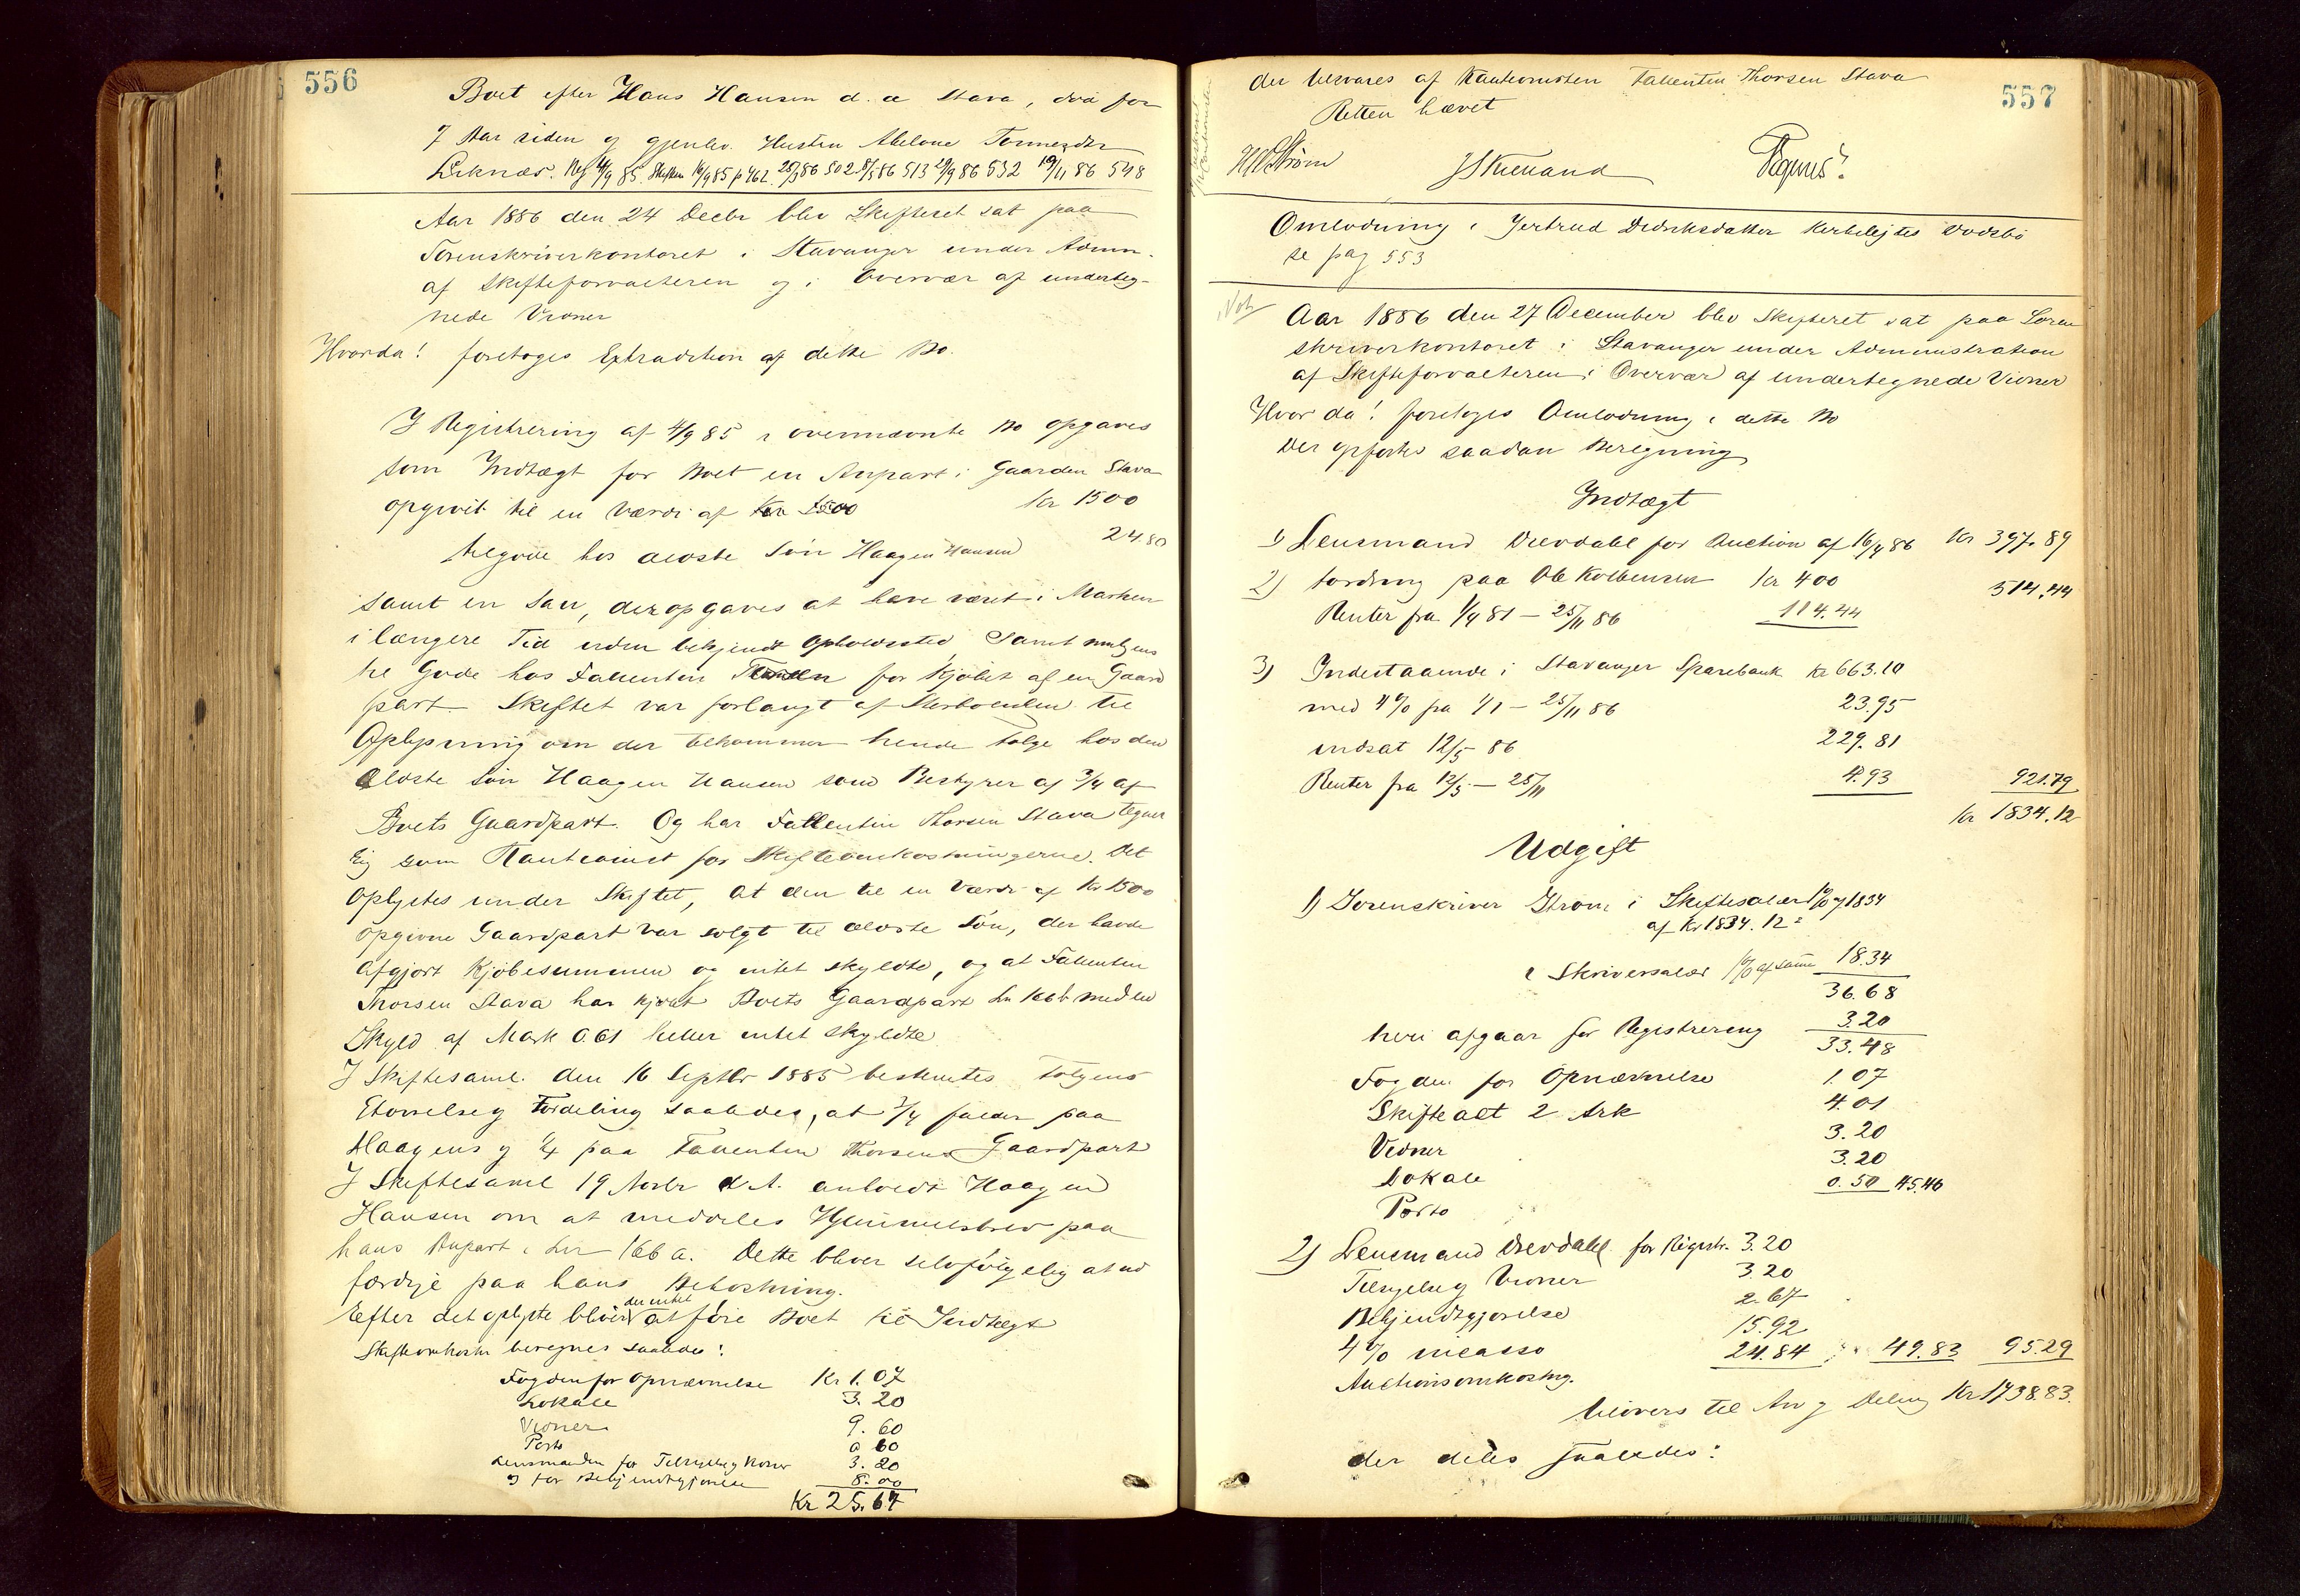 556
Boet efter Hans Hansen d. æ Stava, død for
7 Aar siden og gjenlev. Hustru Abelone Tonnesdtr
Leknæs. Reg 4/9 85. Skiften 16/9 85 p 462. 25/3 86 502 8/5 86 513 29/9 86 532 19/11 86 548
Aar 1886 den 24 Decbr blev Skifteret sat paa
Sorenskriverkontoret i Stavanger under Admin.
af Skifteforvalteren og i Overvær af underteg-
nede Vidner
Hvorda! foretoges Extradition af dette Bo.
I Registrering af 4/9 85 i ovennævnte Bo opgaves
som Indtægt for Boet en Anpart i Gaarden Stava
opgivet til en Værdi af Kr 1500 Kr 1500
tilgode hos ældste Søn Haagen Hansen 24.80
samt en Sau, der opgaves at have været i Marken
i længere Tid uden bekjendt Opholdssted, Samt muligens
til Gode hos Fallentin for Kjøbet af en Gaard
part. Skiftet var forlangt af Sterboenken til
Oplysning om der tilkommer hende Folge hos den
ældste Søn Haagen Hansen som Bestyrer af 3/4 af
Boets Gaardpart. Og har Fallentin Thorsen Stava tegnet
sig som Kautionist for Skifteomkostningerne. Det
oplystes under Skiftet, at den til en Værdi af Kr 1500
opgivne Gaardpart var solgt til ældste Søn, der havde
afgjort Kjøbesummen og intet skyldte, og at Fallentin
Thorsen Stava har kjøbt Boets Gaardpart Ln 166 b med en
Skyld af Mark 0.61 heller intet skyldte
I Skiftesaml. den 16 Septbr 1885 besluttes Folgens
Størrelse og Fordeling saaledes, at 3/4 falder paa
Haagens og 1/4 paa Fallentin Thorsens Gaardpart
I Skiftesaml 19 Novbr d. A. anholdt Haagen
Hansen om at meddeles Hjemmelsbrev paa
hans Anpart i Lnr 166 a. Dette bliver selvfølgelig at ud
færdige paa hans Bekostning.
Efter det oplyste bliver der intet at føre Boet til Indtægt
Skifteomkostn beregnes saaledes:
Fogden for Opnævnelse Kr 1.07
Lokale 3.20
Vidner 9.60
Porto 0 60
Lensmanden for Tilsigelse og Varsel 3.20
og for Bekjendtgjørelse 8.00
Kr 25.67
557
der tilsvares af Kautionisten Fallentin Thorsen Stava
Retten hævet
HStrøm
Omlodning i Gertrud Didriksdatter Kirkelejtes Vodsbo
se pag 553
Not
Aar 1886 den 27 December blev Skifteret sat paa Soren
skriverkontoret i Stavanger under Administration
af Skifteforvalteren i Overvær af undertegnede Vidner
Hvor da! foretoges Omlodning i dette Bo
Der opførtes saadan Beregning
Indtægt
1) Lensmand Drevdahl for Auction af 16/4 86 Kr 397.89
2) fordring paa Ole Kolbensen Kr 400
514.44
Renter fra 1/4 81 – 25/11 86 114.44
3) Indestaaende i Stavanger Sparebank Kr 663.10
med 4% fra 1/1 – 25/11 86 23.95
indsat 12/5 86 229.81
Renter fra 12/5 – 25/11 4.93 921.79
Kr 1834.12
Udgift
1) Sorenskriver Strøm i Skiftesalær 1% af 1834
af Kr 1834.12
i Skriversalær 1% af samme 18.34
36.68
heri afgaar for Registrering 3.20
33.48
Fogden for Opnævnelse 1.07
Skifteact 2 Ark 4.01
Vidner 3.20
Lokale 3.20
Porto 0.50 45.46
2) Lensmand Drevdahl for Registr. 3.20
Tilsigelse og Vidner 3.20
Bekjendtgjørelse 2.67
4% incasso 15.92
Auctionsomkostng. 24.84 49.83 95.29
tilovers til Arv og Deling Kr 1738.83.
der deles saaledes: